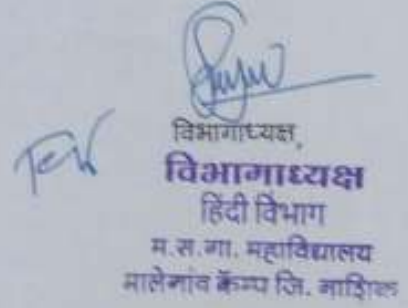 विभागाध्यक्ष,
विभागाध्यक्ष
हिंदी विभाग
म.स.गा. महाविद्यालय
मालेगांव कॅम्प जि. नाशिक